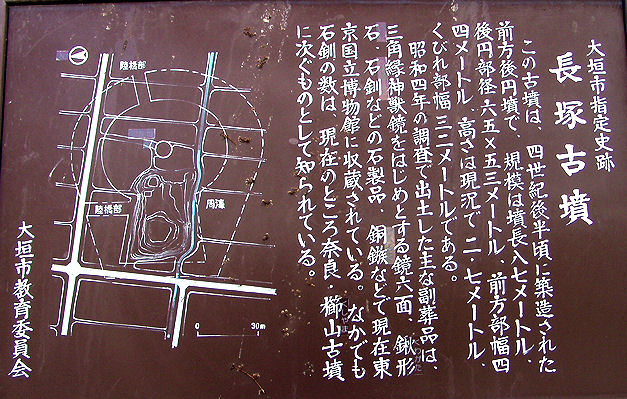 大垣市指定史跡
長塚古墳
この古墳は、四世紀後半頃に築造された
前方後円墳で、規模は墳長八七メートル、
後円部径六五×五三メートル、前方部幅四
四メートル、高さは現況で二・七メートル、
くびれ部幅三二メートルである。
昭和四年の調査で出土した主な副葬品は、
三角縁神獣鏡をはじめとする鏡六面、鍬形
石、石釧などの石製品、銅鏃などで現在東
京国立博物館に収蔵されている。なかでも
石釧の数は、現在のところ奈良・櫛山古墳
に次ぐものとして知られている。
陸橋部
周濠
陸橋部
0 30m
大垣市教育委員会